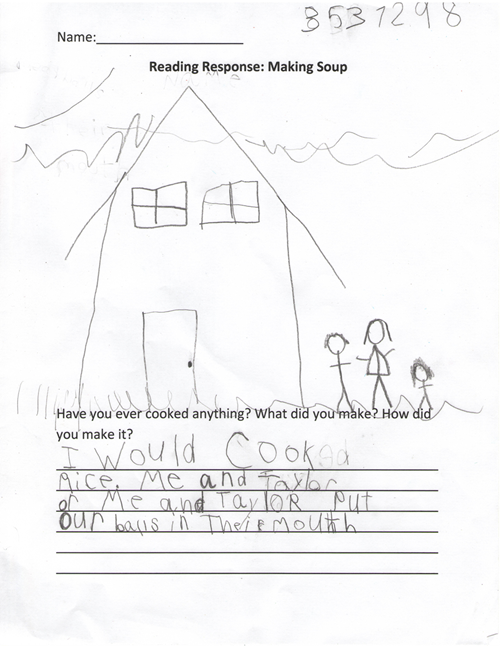 8531298
Name:
Reading Response: Making Soup
Have you ever cooked anything? What did you make? How did
you make it?
I Would Cook
Rice. Me and Taylor
or Me and TayloR put
Our in Their mouth